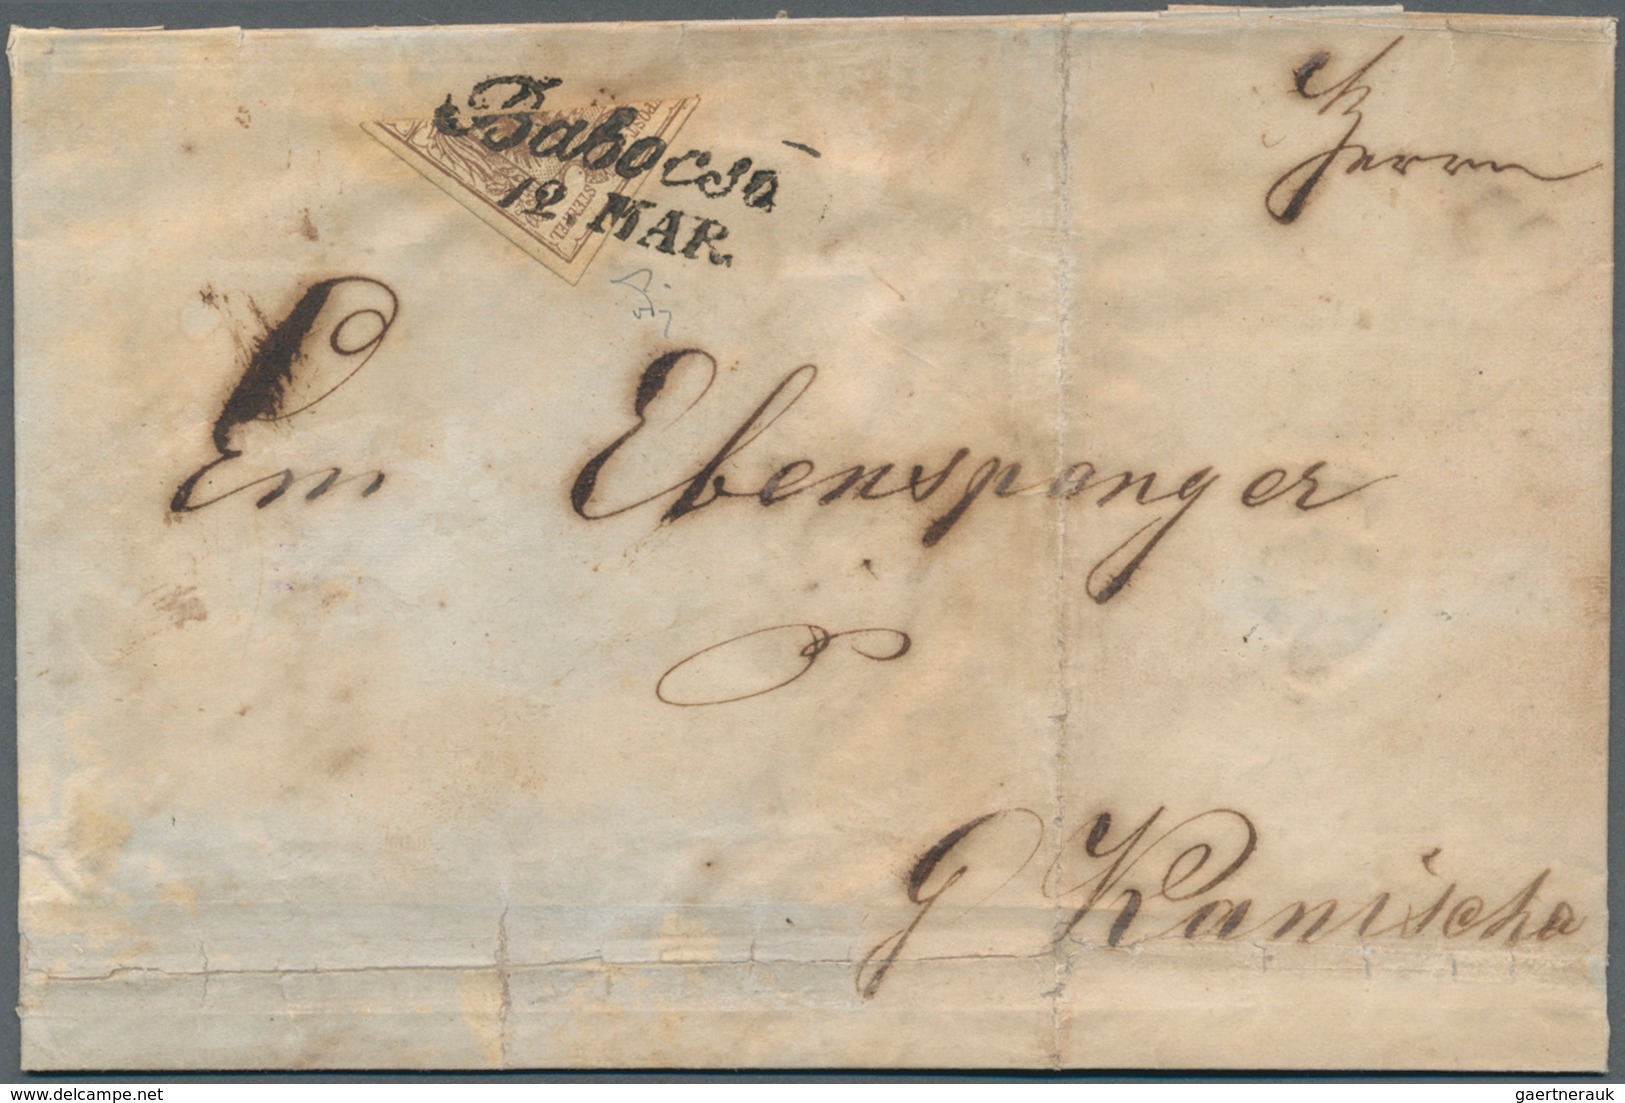 Herrn
Babocsa
12. MAR.
POST
STEMPEL
Em Ebenspanger
G Kanischa
gaertnerauk delcampe.net